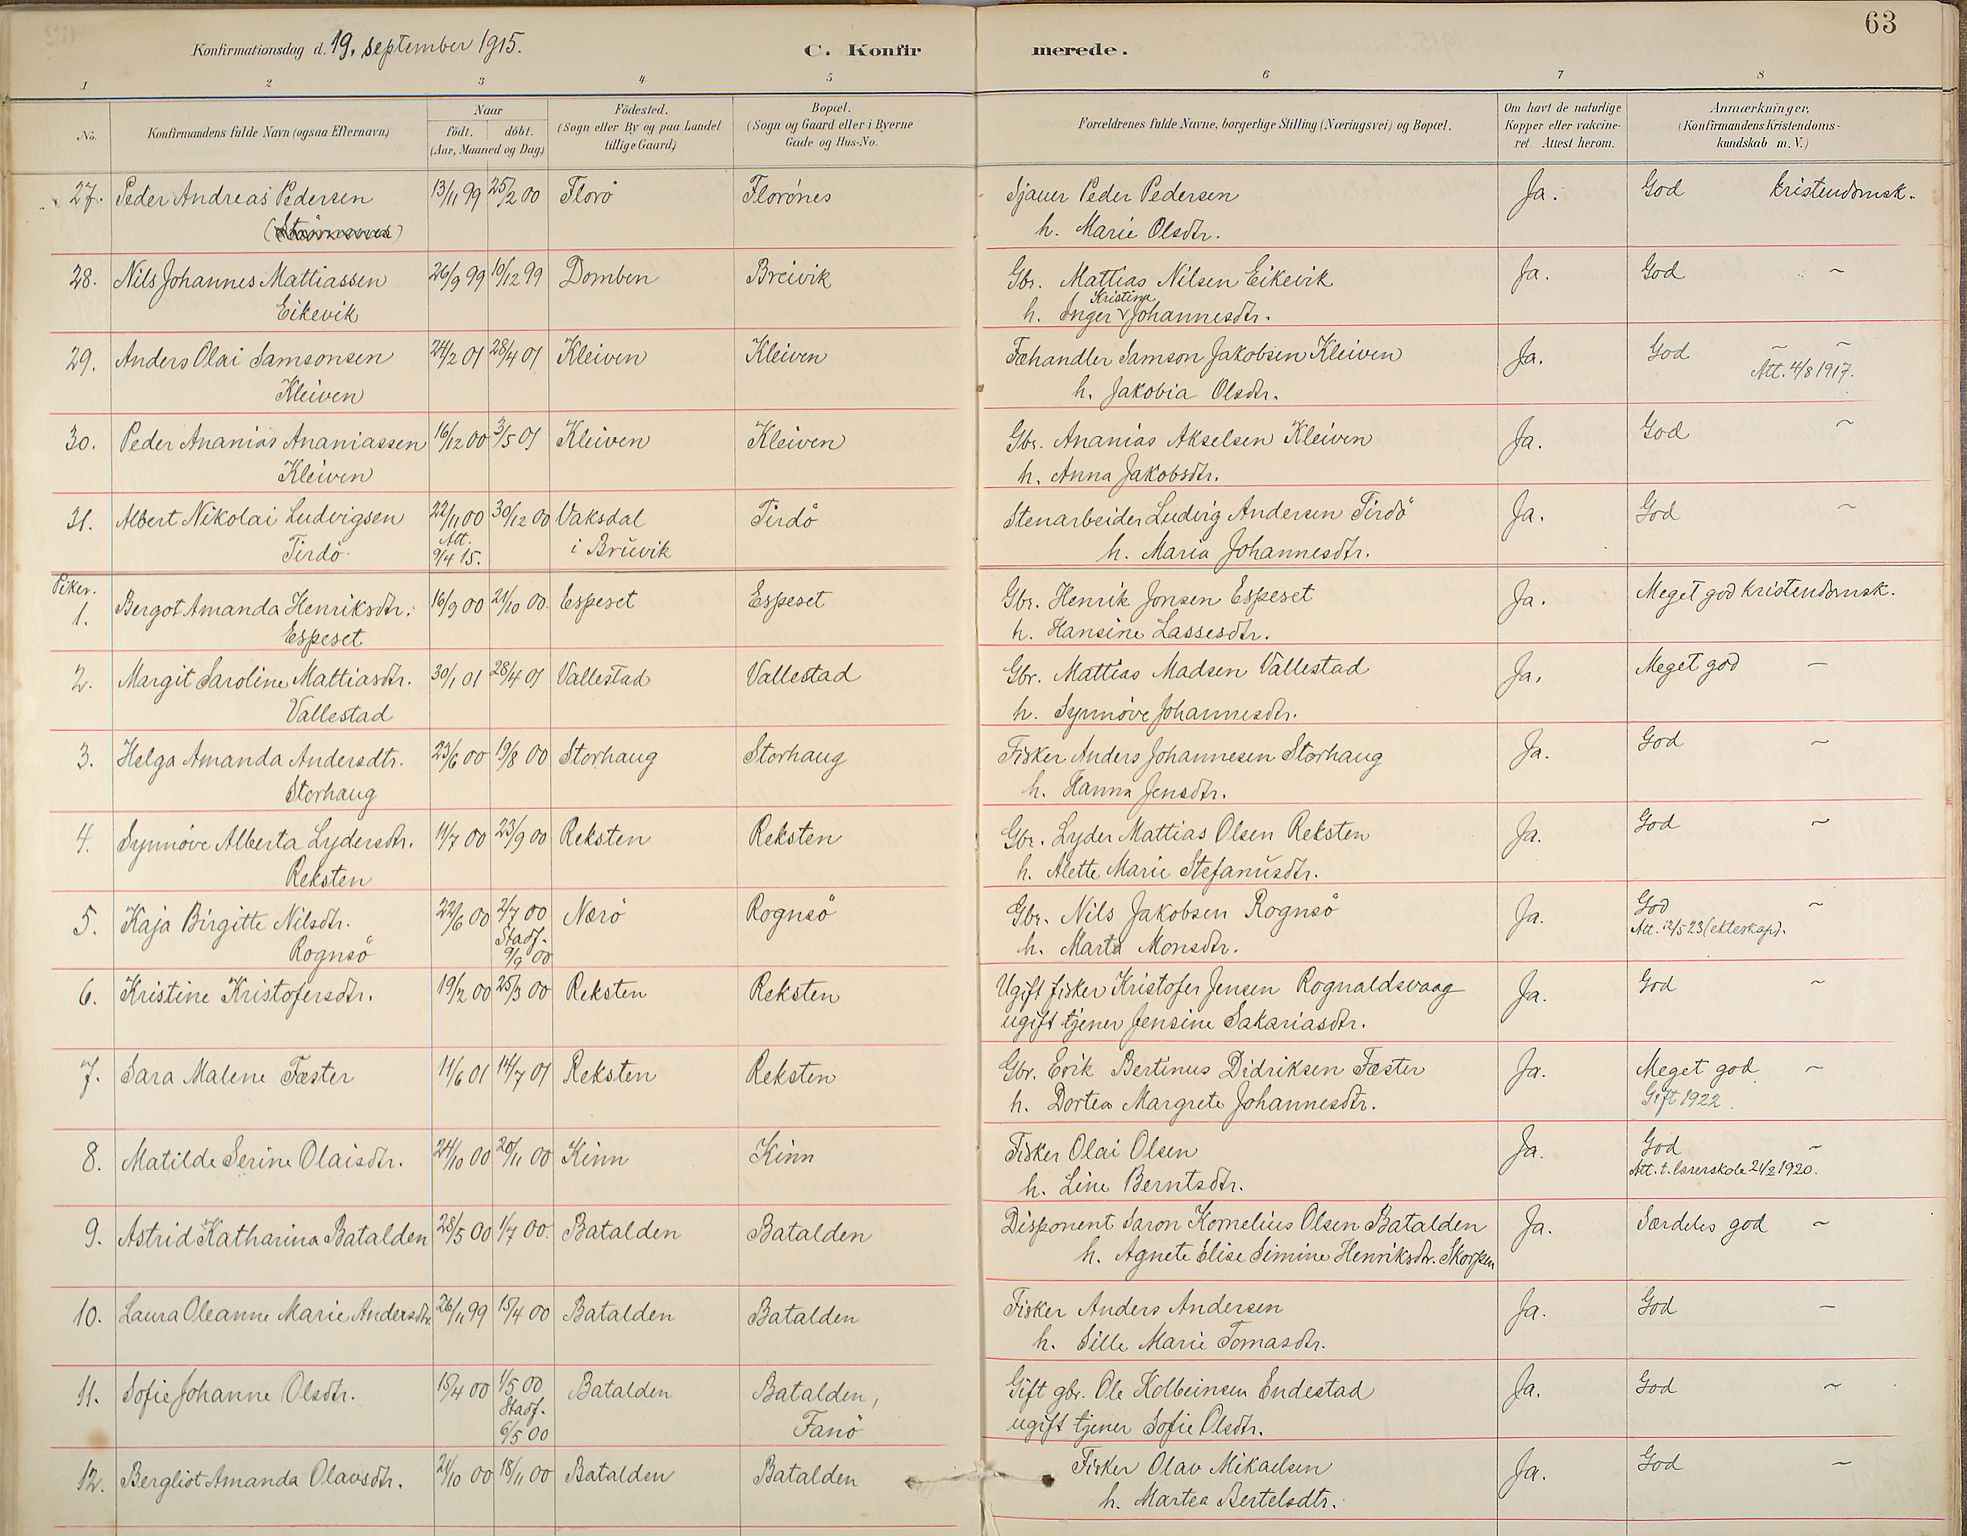 63
Konfirmationsdag d. 19. september 1915.
C. Konfirmerede.
1 2 3 4 5 6 7 8
No.
Konfirmandens fulde Navn (ogsaa Efternavn)
Naar
födt. döbt.
(Aar, Maaned og Dag)
Födested.
(Sogn eller By og paa Landet
tillige Gaard)
Bopæl.
(Sogn og Gaard eller i Byerne
Gade og Hus-No.
Forældrenes fulde Navne, borgerlige Stilling (Næringsvei) og Bopæl.
Om havt de naturlige
Kopper eller vakcine-
ret Attest herom.
Anmærkninger.
(Konfirmandens Kristendoms-
kundskab m. V.)
27. Peder Andreas Pedersen 13/11 99 25/2 00 Florö Florönes Sjauer Peder Pedersen Ja. God kristendomsk.
h. Marie Olsdtr.
28. Nils Johannes Mattiassen 26/9 99 10/12 99 Domben Breivik Gbr. Mattias Nilsen Eikevik Ja. God ~
Eikevik h. Inger Kristine Johannesdtr.
29. Anders Olai Samsonsen 24/2 01 28/4 01 Kleiven Kleiven Fæhandler Samson Jakobsen Kleiven Ja. God ~ ~
Kleiven h. Jakobia Olsdtr. Att. 4/8 1917.
30. Peder Ananias Ananiassen 16/12 00 3/5 01 Kleiven Kleiven Gbr. Ananias Akselsen Kleiven Ja. God ~
Kleiven h. Anna Jakobsdtr.
31. Albert Nikolai Ludvigsen 22/11 00 30/12 00 Vaksdal Tirdö Stenarbeider Ludvig Andersen Tirdö Ja. God ~
Tirdö Att. 9/4 15. i Bruvik h. Maria Johannesdtr.
Piker.
1. Bergot Amanda Henriksdtr. 16/9 00 21/10 00. Espeset Espeset Gbr. Henrik Jonsen Espeset Ja. Meget god kristendomsk.
Espeset h. Hansine Lassesdtr.
2. Margit Saroline Mattiasdtr. 30/1 01 28/4 01 Vallestad Vallestad Gbr. Mattias Madsen Vallestad Ja. Meget god ~
Vallestad h. Synnöve Johannesdtr.
3. Helga Amanda Andersdtr. 23/6 00 19/8 00 Storhaug Storhaug Fisker Anders Johannesen Storhaug Ja. God ~
Storhaug h. Hanna Jensdtr.
4. Synnöve Alberta Lydersdtr. 11/7 00 23/9 00 Reksten Reksten Gbr. Lyder Mattias Olsen Reksten Ja. God ~
Reksten h. Alette Marie Stefanusdtr.
5. Kaja Birgitte Nilsdtr. 22/6 00 2/7 00 Nærö Rognsö Gbr. Nils Jakobsen Rognsö Ja. God ~
Rognsö Stadf. 9/9 00 h. Marta Monsdtr. Att. 12/5 23 (ekteskap).
6. Kristine Kristofersdtr. 19/2 00 25/3 00 Reksten Reksten Ugift fisker Kristofer Jensen Rognaldsvaag Ja. God ~
ugift tjener Jensine Sakariasdtr.
7. Sara Malene Fæster 11/6 01 14/7 01 Reksten Reksten Gbr. Erik Bertinus Didriksen Fæster Ja. Meget god ~
h. Dortea Margrete Johannesdtr. Gift 1922.
8. Matilde Serine Olaisdtr. 24/10 00 20/11 00 Kinn Kinn Fisker Olai Olsen Ja. God ~
h. Line Berntsdtr. Att. t. lærerskole 21/2 1920.
9. Astrid Katharina Batalden 28/5 00 1/7 00. Batalden Batalden Disponent Saron Kornelius Olsen Batalden Ja. Særdeles god ~
h. Agnete Elise Simine Henriksdtr. Skorpen
10. Laura Oleanne Marie Andersdtr. 26/11 99 15/4 00 Batalden Batalden Fisker Anders Andersen Ja. God ~
h. Sille Marie Tomasdtr.
11. Sofie Johanne Olsdtr. 15/4 00 1/5 00 Batalden Batalden, Gift gbr. Ole Kolbeinsen Endestad Ja. God ~
Stadf. 6/5 00 Fanö ugift tjener Sofie Olsdtr.
12. Bergliot Amanda Olavsdtr. 21/10 00 18/11 00 Batalden Batalden Fisker Olav Mikaelsen Ja. God ~
h. Martea Bertelsdtr.